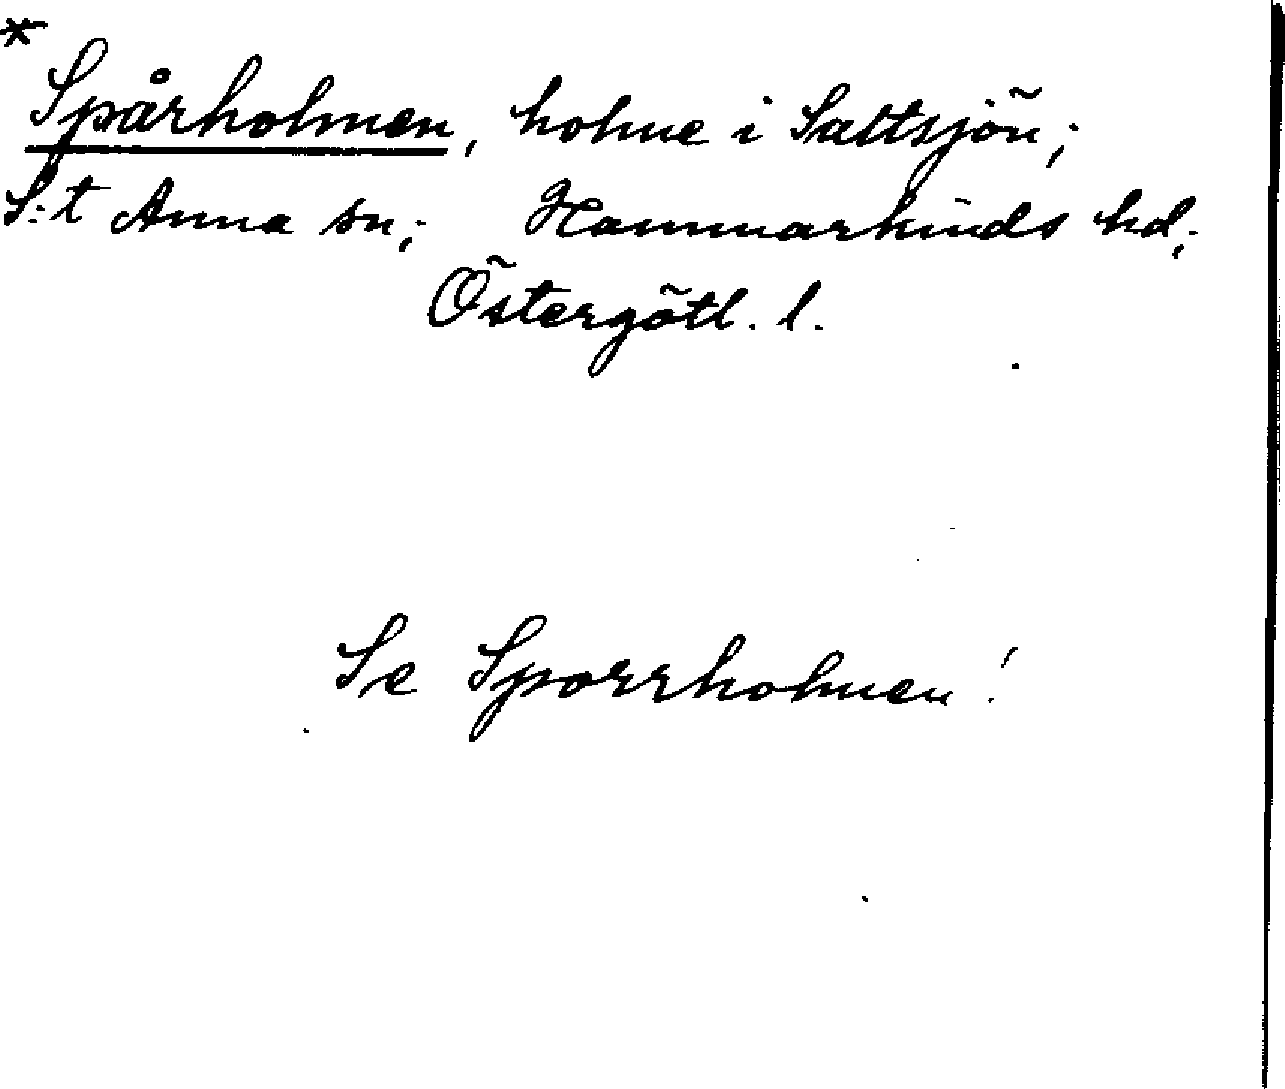 *
Spårholmen, holme i Saltsjön;
S:t Anna sn; Hammarkinds hd;
Östergötl. l.
Se Sporrholmen!